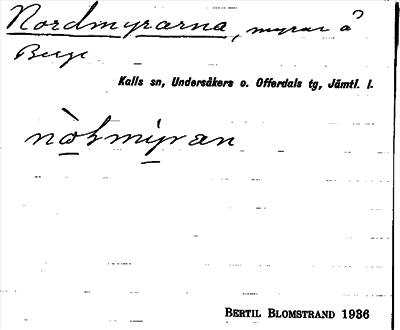 Nordmyrarna, myrar å
Berge
Kalls sn, Undersåkers o. Offerdals tg, Jämtl. l.
BERTIL BLOMSTRAND 1936